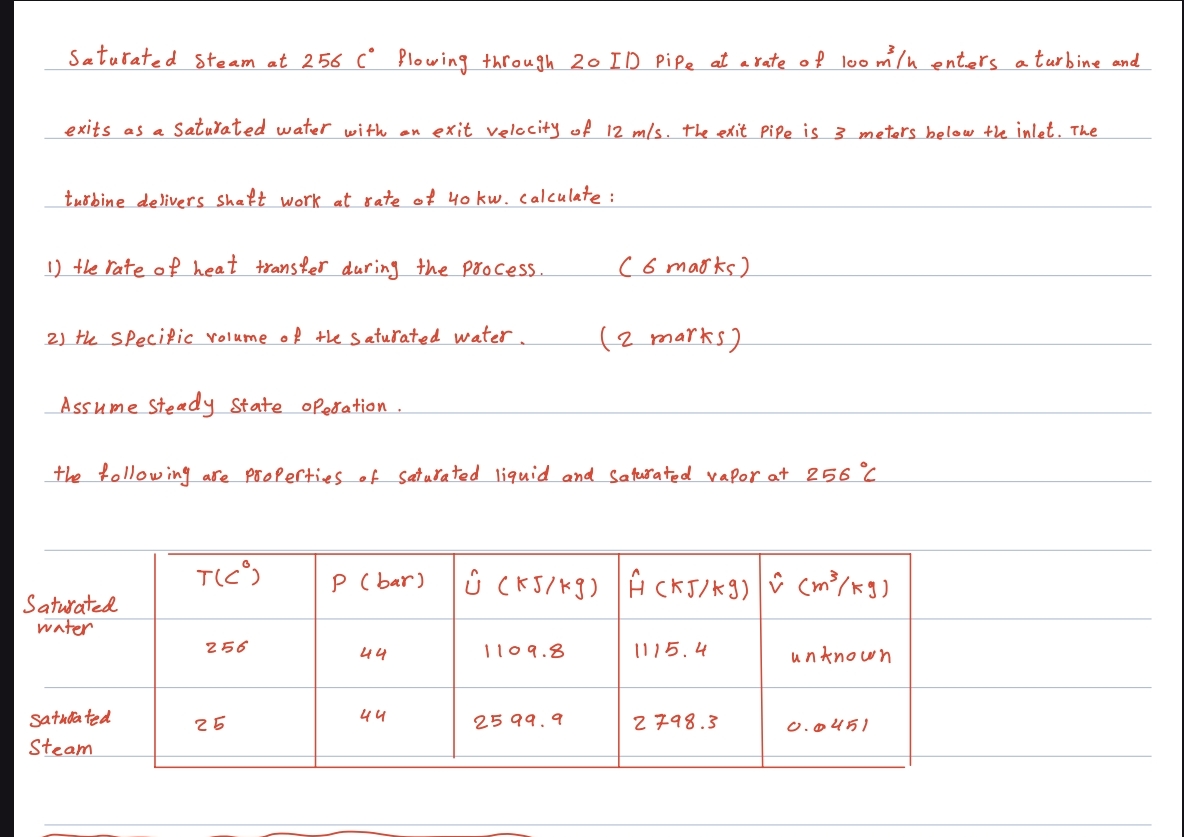 Saturated steam at 256 C° flowing through 20 ID pipe at a rate of 100 m³/h enters a turbine and
exits as a saturated water with an exit velocity of 12 m/s. the exit pipe is 3 meters below the inlet. The
turbine delivers shaft work at rate of 40 kw. calculate :
1) the rate of heat transfer during the process. (6 marks)
2) the specific volume of the saturated water. (2 marks)
Assume steady state operation.
the following are properties of saturated liquid and saturated vapor at 256 °C
T(C°) P (bar) Û (KJ/kg) Ĥ (KJ/kg) v̂ (m³/kg)
Saturated water 256 44 1109.8 1115.4 unknown
Saturated Steam 25 44 2599.9 2798.3 0.0451